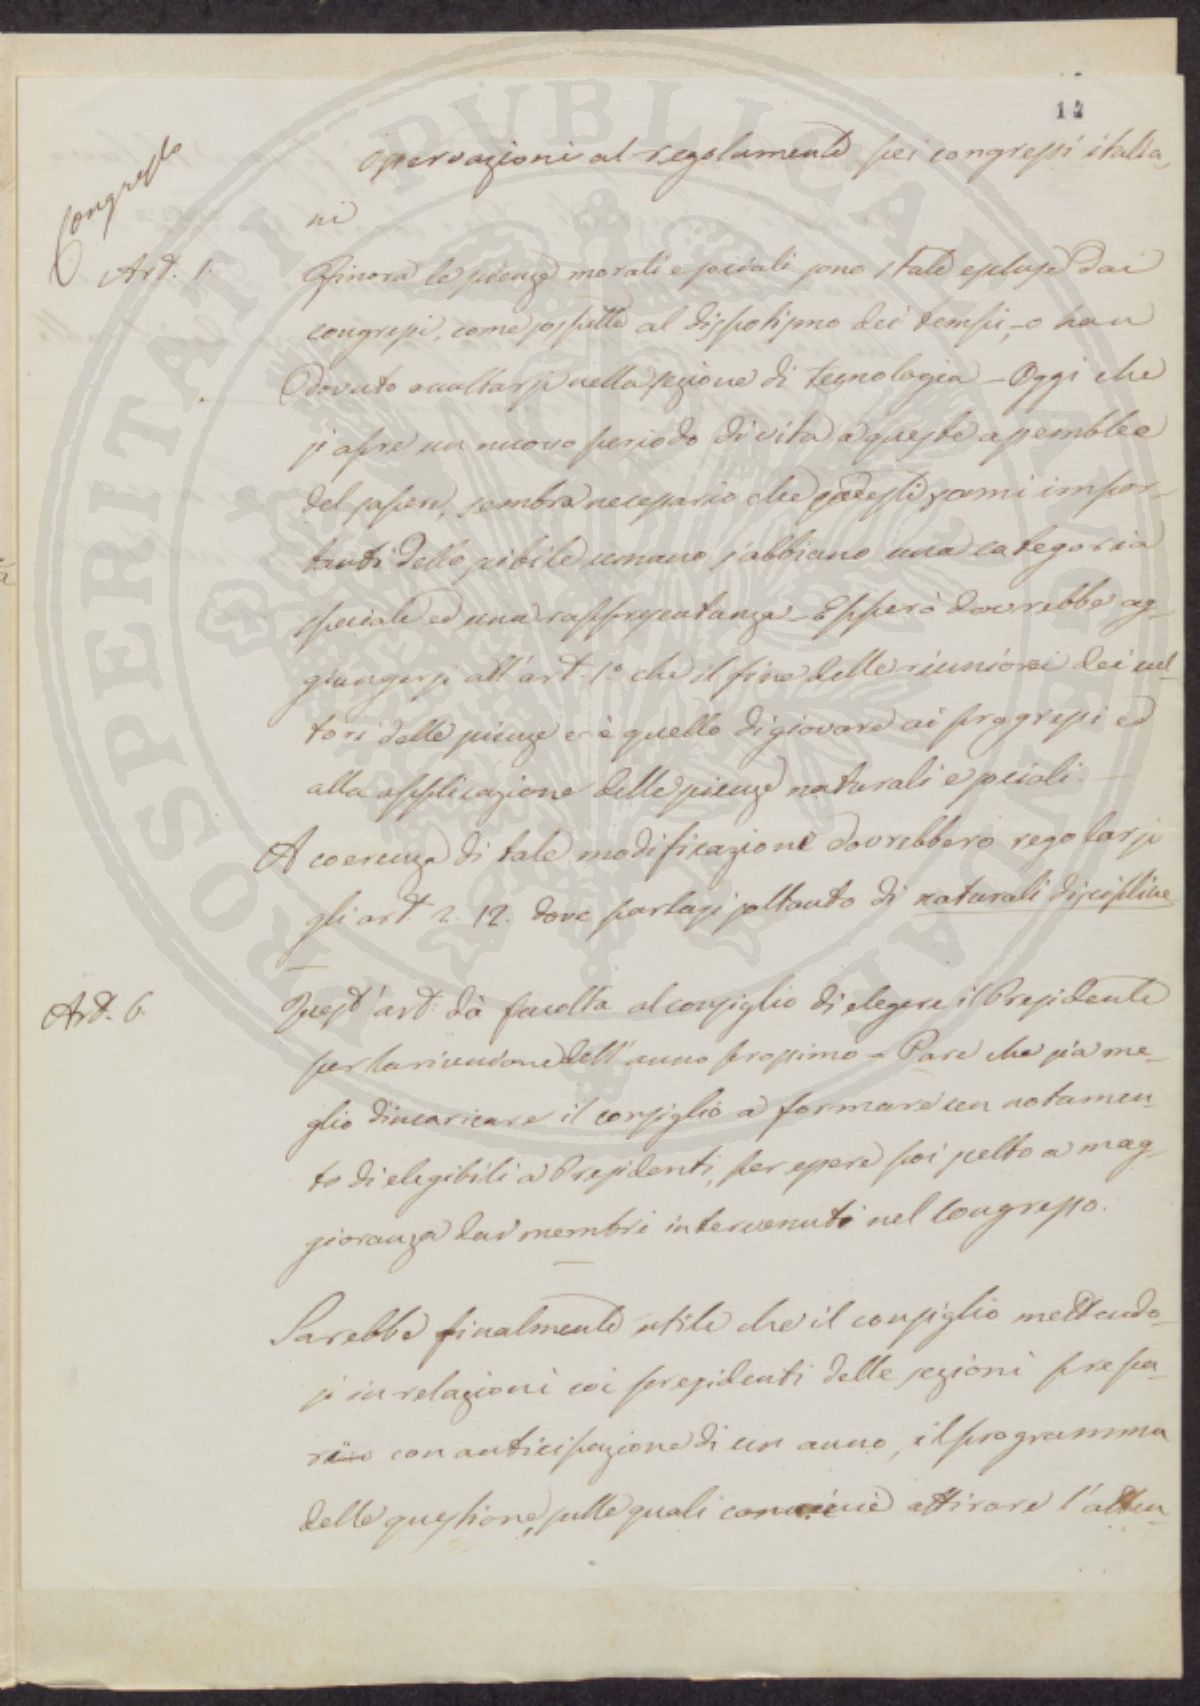 14
Congresso
Osservazioni al regolamento pei congressi italia-
ni
Art. 1.
Finora le scienze morali e sociali sono state escluse dai
congressi, come sospette al dispotismo dei tempi, o han
dovuto occultarsi nella sezione di tegnologia – Oggi che
si apre un nuovo periodo di vita a queste assemblee
del sapere, sembra necessario che codesti rami impor-
tanti dello scibile umano s'abbiano una categoria
speciale ed una rappresentanza – Epperò dovrebbe ag-
giungersi all'art. 1º che il fine delle riunioni dei cul-
tori delle scienze è quello di giovare ai progressi ed
alla applicazione delle scienze naturali e sociali. –
A coerenza di tale modificazione dovrebbero regolarsi
gli art 2. 12. dove parlasi soltanto di naturali discipline
Art. 6.
Quest'art. dà facoltà al consiglio di elegere il Presidente
per la riunione dell'anno prossimo – Pare che sia me-
glio d'incaricare il consiglio a formare un notamen-
to di elegibili a Presidenti, per essere poi scelto a mag-
gioranza dai membri intervenuti nel Congresso.
Sarebbe finalmente utile che il consiglio mettendo-
si in relazioni coi presidenti delle sezioni prepa-
ri con anticipazione di un anno, il programma
delle questione, sulle quali conviene attirare l'atten-
PROSPERITATI PUBLICAE